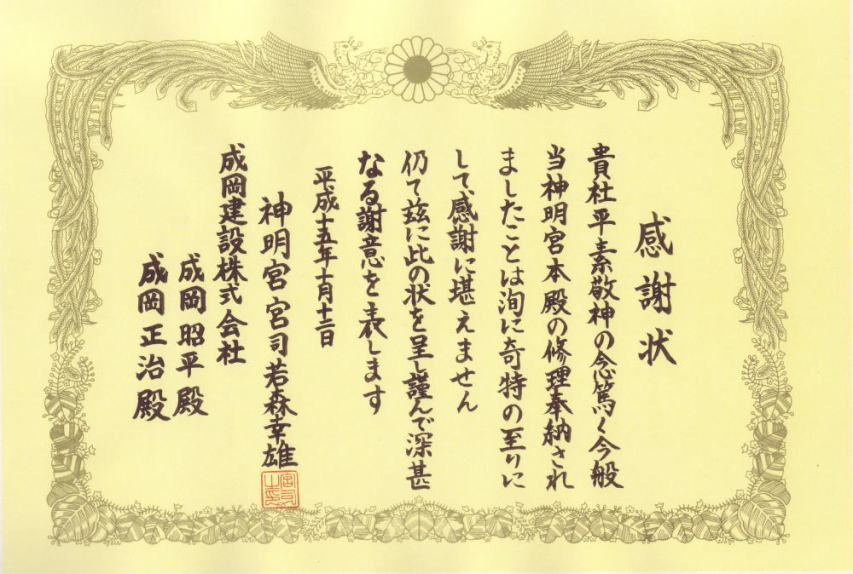 感謝状
貴社平素敬神の念篤く今般
当神明宮本殿の修理奉納され
ましたことは洵に奇特の至りに
して感謝に堪えません
仍て玆に此の状を呈し謹んで深甚
なる謝意を表します
平成十五年十月十二日
神明宮宮司若森幸雄
成岡建設株式会社
成岡昭平殿
成岡正治殿